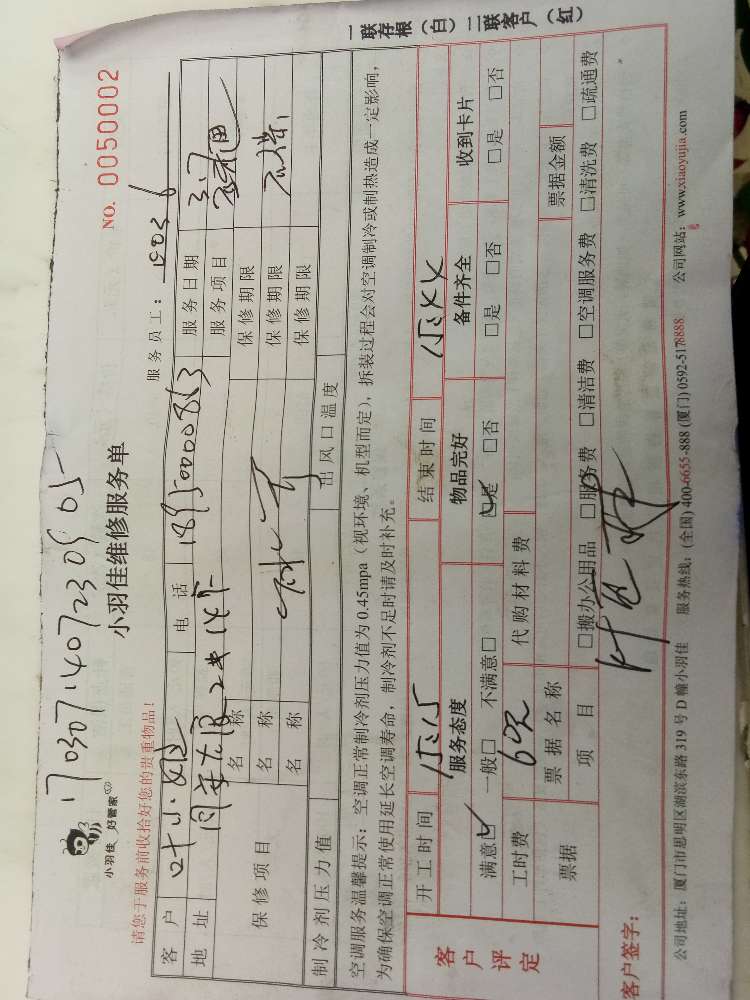 一联存根（白）二联客户（红）
17030714072309 05
小羽佳 好管家
小羽佳维修服务单
NO. 0050002
请您于服务前收拾好您的贵重物品！
服务员工：
客户 叶小姐 电话 18950000853 服务日期
地址 服务项目
保修项目 名称 保修期限
名称 保修期限
名称 保修期限
制冷剂压力值 出风口温度
空调服务温馨提示：空调正常制冷剂压力值为0.45mpa（视环境、机型而定），拆装过程会对空调制冷或制热造成一定影响，
为确保空调正常使用延长空调寿命，制冷剂不足时请及时补充。
客户评定
开工时间 结束时间
服务态度 物品完好 备件齐全 收到卡片
满意□ 一般□ 不满意□ □是 □否 □是 □否 □是 □否
工时费 60元 代购材料费
票据 票据名称 票据金额
项目 □搬办公用品 □服务费 □清洁费 □空调服务费 □清洗费 □疏通费
客户签字：
公司地址：厦门市思明区湖滨东路319号D幢小羽佳 服务热线：(全国) 400-6655-888 (厦门) 0592-5178888 公司网站：www.xiaoyujia.com